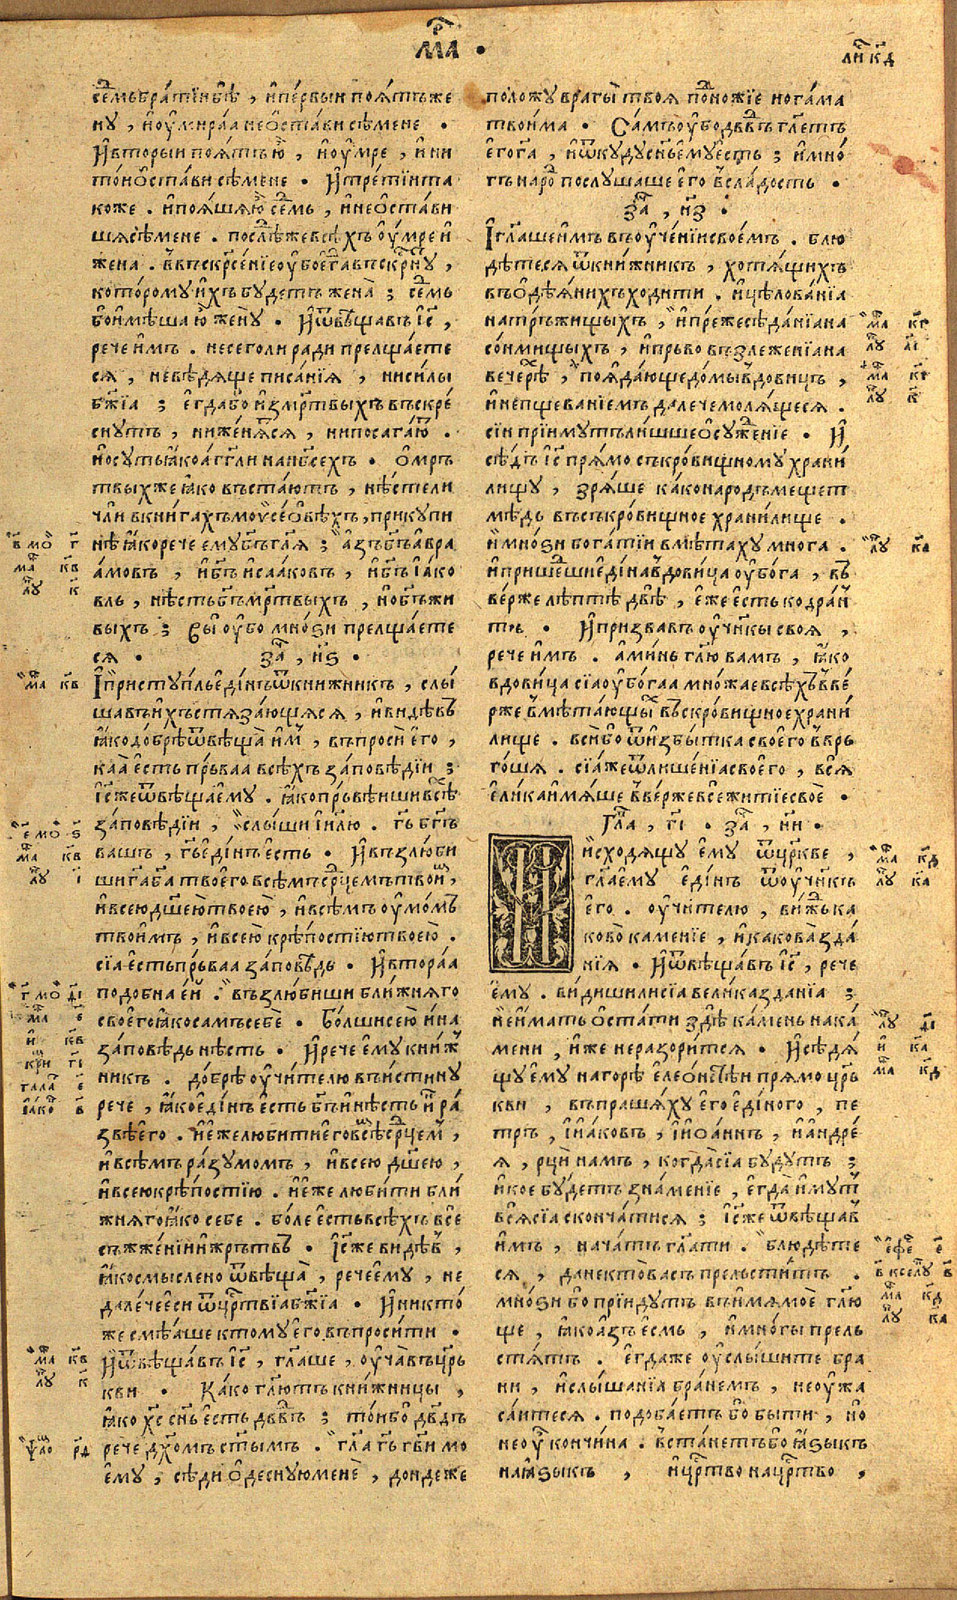 мр҃ка •
ли҃ кд
се́мь бра́тїи бѣ̀ , и҆пе́рвыи поѧ́тъ же
ну̀ , и҆ оу҆мира́ѧ неѡ҆ста́ви сѣ́мене •
И҆ вторы́и поѧ́тъ ю҆̀ , и҆ оу҆́мре , и҆ ни
то́и ѡ҆ста́ви сѣ́мене • И҆ тре́тїи та
коже . и҆ поѧ́шѧ ю҆̀ се́мь , и҆ неѡ҆ста́ви
шѧ сѣ́мене . послѣ́же всѣ́хъ оу҆́мре и҆
жена . в въскр҃се́нїе оу҆́бо є҆гда̀ въскр҃нꙋ ,
кото́ромꙋ и҆́хъ бꙋ́детъ жена̀ ; се́мь
бо и҆мѣ́ша ю҆̀ женꙋ̀ • И҆ ѿвѣща́въ і҆с҃ ,
рече и҆́мъ . не сего́ ли ра́ди прелща́ете
сѧ , невѣ́дѧще писа́нїѧ , ни си́лы
бж҃їа ; є҆гда́ бо и҆з ме́ртвыхъ въскре́
снꙋтъ , ни же́нѧтсѧ , ни посага́ютъ .
но сꙋ́ть ꙗ҆́ко а́гг҃ли на нб҃сехъ • Ѡ҆ мр҃ъ
твы́хъ же ꙗ҆́ко въста́ютъ , нѣ́сте ли
члѝ в кни́гахъ моѵ҆се́ѡвѣхъ , при кꙋпи
нѣ̀ ꙗ҆́ко рече є҆мꙋ̀ бг҃ъ гл҃ѧ ; а҆́зъ бг҃ъ а҆вра
а́мовъ , и҆ бг҃ъ и҆саа́ковъ , и҆ бг҃ъ і҆а́ко
вль , нѣ́сть бг҃ъ ме́ртвыхъ , но бг҃ъ жи
вы́хъ ; вы́ оу҆̀бо мно́ѕи прелща́ете
сѧ • за҃ , н҃ѕ •
И҆ пристꙋ́пль є҆ди́нъ ѿ кни́жникъ , слы́
шавъ и҆́хъ стѧза́ющѧсѧ , и҆ ви́дѣвъ
ꙗ҆́ко до́брѣ ѿвѣща̀ и҆́мъ , въпросѝ є҆го̀ ,
ка́ѧ є҆́сть пе́рваа всѣ́хъ за́повѣдїи ;
і҆с҃ же ѿвѣща̀ є҆мꙋ̀ . ꙗ҆́ко прь́вѣиши всѣ́хъ
за́повѣдїи , слы́ши і҆и҃лю . гь҃ бг҃ъ
вашъ , гь҃ є҆ди́нъ є҆́сть • И҆ възлю́би
ши га҃ ба҃ твоего̀ всѣ́мъ срⷣцемъ твои́мъ ,
и҆ все́ю дш҃ею твое́ю , и҆ всѣ́мъ оу҆мо́мъ
твои́мъ , и҆ все́ю крѣ́постїю твое́ю .
сїа̀ є҆́сть прь́ваа за́повѣдь • И҆ втора́а
подо́бна е҆́й . възлю́биши бли́жнѧго
своего̀ ꙗ҆́ко са́мъ себѐ • Бо́лши сею и҆на̀
за́повѣдь нѣ́сть • И҆ рече є҆мꙋ̀ кни́ж
никъ . до́брѣ оу҆чи́телю въи́стинꙋ
рече , ꙗ҆́ко є҆ди́нъ є҆́сть бг҃ъ и҆ нѣ́сть и҆́нъ ра́
звѣ є҆го̀ . и҆ е҆́же люби́ти є҆го̀ всѣ́мъ срⷣцемъ ,
и҆ всѣ́мъ ра́зꙋмомъ , и҆ все́ю дш҃ею ,
и҆ все́ю крѣ́постїю . и҆ е҆́же люби́ти бли́
жнѧго ꙗ҆́ко себе . бо́ле є҆́сть всѣ́хъ все
съжже́нїи и҆ жрь́твъ • І҆с҃ же ви́дѣвъ ,
ꙗ҆́ко смы́слено ѿвѣща̀ , рече є҆мꙋ̀ , не
дале́че є҆сѝ ѿ црⷭтвїа бж҃їа • И҆ никто́
же смѣ́аше ктомꙋ̀ є҆го̀ въпроси́ти •
И҆ ѿвѣща́въ і҆с҃ , гл҃аше , оу҆ча̀ въ црь́
кви • Ка́ко гл҃ютъ кни́жницы ,
ꙗ҆́ко хс҃ сн҃ъ є҆́сть дв҃двъ ; то́и бо дв҃дъ
рече дх҃омъ ст҃ымъ . гл҃а гь҃ гв҃и мо
є҆мꙋ̀ , сѣдѝ ѡ҆деснꙋ́ю менѐ , до́ндеже
положꙋ̀ врагы̀ твоѧ̀ подно́жїе нога́ма
твои́ма • Са́мъ оу҆̀бо дв҃дъ гл҃етъ
є҆го̀ га҃ , и҆ ѿкꙋ́дꙋ сн҃ъ є҆мꙋ̀ є҆́сть ; и҆ мно́
гъ наро́дъ послꙋ́шаше є҆го̀ в сла́дость •
за҃ , н҃з •
И҆ гл҃аше и҆́мъ въ оу҆че́нїи свое́мъ . блю
дѣ́тесѧ ѿ кни́жникъ , хотѧ́щихъ
въ ѡ҆дѣѧ́нихъ ходи́ти . и҆ цѣлова́нїа
на тръ́жищыхъ , и҆ пре́же сѣда́нїа на
со́нмищыхъ , и҆ прь́во възлеже́нїа на
вече́рѣ , поѧда́юще до́мы вдови́цъ ,
и҆ непщева́нїемъ дале́че молѧ́щесѧ .
сїи прїи́мꙋтъ ли́шшее ѡ҆сꙋже́нїе • И҆
сѣ́дъ і҆с҃ прѧ́мо съкро́вищномꙋ храни́
лищꙋ , зрѧ́ше ка́ко наро́дъ ме́щет
мѣ́дь въ съкро́вищное храни́лище .
и҆ мно́ѕи бога́тїи вмѣта́хꙋ мно́га .
и҆ прише́дши є҆ди́на вдови́ца оу҆бо́га , въ
ве́рже лѣ́птѣ двѣ̀ , е҆́же є҆́сть кодра́н
тъ • И҆ призва́въ оу҆чн҃кы своѧ̀ ,
рече и҆́мъ . а҆ми́нь гл҃ю ва́мъ , ꙗ҆́ко
вдови́ца сїа̀ оу҆бо́гаа мно́жае всѣ́хъ въве́
рже вмѣта́ющыхъ въ скро́вищное храни́
лище . вси́ бо ѿ и҆збы́тка своего̀ вврь
го́ша . сїа́ же ѿ лише́нїа своего̀ , всѧ̀
е҆ли́ка и҆мѧ́ше вве́рже всѐ житїе своѐ •
Гл҃а , г҃і • за҃ , н҃и •
И҆сходѧ́щꙋ є҆мꙋ̀ ѿ цр҃кве ,
гл҃а є҆мꙋ̀ є҆ди́нъ ѿ оу҆чн҃къ
є҆го̀ . оу҆чи́телю , ви́ждь ка
ково̀ ка́менїе , и҆ какова̀ зда́
нїѧ • И҆ ѿвѣща́въ і҆с҃ , рече
є҆мꙋ̀ . ви́диши ли сїа̀ вели́ка зда́нїа ;
не и҆́мать ѡ҆ста́ти здѣ̀ ка́мень на ка́
мени , и҆́же не разори́тсѧ • И҆ сѣдѧ́
щꙋ є҆мꙋ̀ на горѣ̀ є҆лео́ньстѣи прѧ́мо црь́
кви , въпраша́хꙋ є҆го̀ є҆ди́ного , пе
тръ , і҆ и҆а́ковъ , і҆ и҆оа́ннъ , и҆ а҆ндре́
ѧ , рцѝ на́мъ , когда̀ сїа̀ бꙋ́дꙋтъ ;
и҆ кое бꙋ́детъ зна́менїе , є҆гда̀ и҆́мꙋт
всѧ̀ сїа̀ сконча́тисѧ ; І҆с҃ же ѿвѣща́въ
и҆́мъ , нача́тъ гл҃ати . блюдѣ́те
сѧ , да некто̀ ва́съ прельсти́тъ .
мно́ѕи бо прїи́дꙋтъ въ и҆́мѧ моѐ гл҃ю
ще , ꙗ҆́ко а҆́зъ є҆́смь , и҆ мно́гы прель
стѧ́тъ . є҆гда́ же оу҆слы́шите бра
ни , и҆ слы́шанїа бра́немъ , не оу҆жа
са́итесѧ . подоба́етъ бо бы́ти , но
не оу҆̀ кончи́на . въста́нетъ бо ꙗ҆зы́къ
на ꙗ҆зы́къ , и҆ црⷭтво на црⷭтво ,